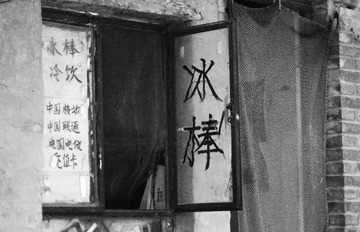 冰棒
冷饮
中国移动
中国联通
中国电信
充值卡
冰棒